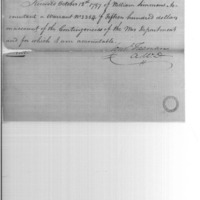 Received October 18th 1797 of William Simmons Ac-
countant a warrant No 2224 of Fifteen hundred dollars
on account of the Contingencies of the War Department
and for which I am accountable.